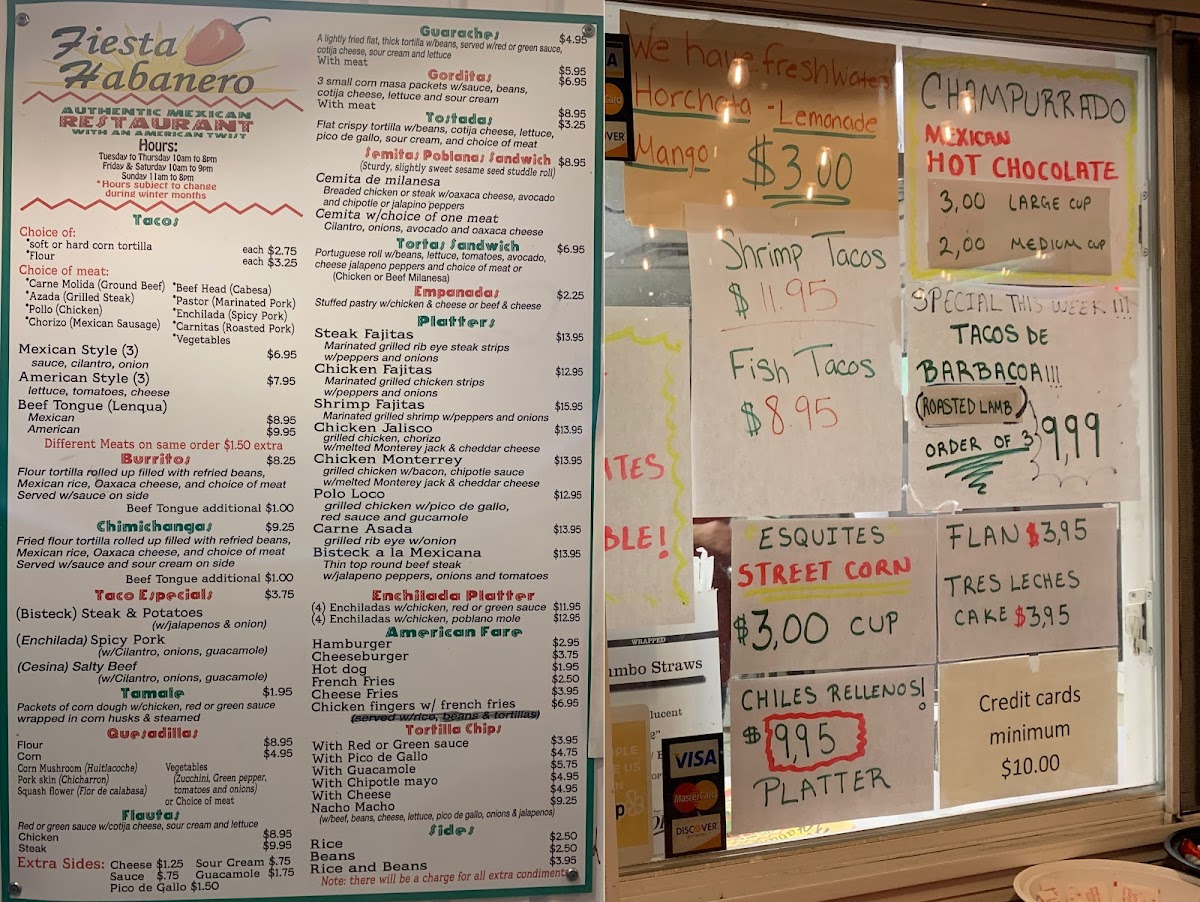 Fiesta
Habanero
AUTHENTIC MEXICAN
RESTAURANT
WITH AN AMERICAN TWIST
Hours:
Tuesday to Thursday 10am to 8pm
Friday & Saturday 10am to 9pm
Sunday 11am to 8pm
*Hours subject to change
during winter months
Tacos
Choice of:
*soft or hard corn tortilla each $2.75
*Flour each $3.25
Choice of meat:
*Carne Molida (Ground Beef)
*Azada (Grilled Steak)
*Pollo (Chicken)
*Chorizo (Mexican Sausage)
*Beef Head (Cabesa)
*Pastor (Marinated Pork)
*Enchilada (Spicy Pork)
*Carnitas (Roasted Pork)
*Vegetables
Mexican Style (3) $6.95
sauce, cilantro, onion
American Style (3) $7.95
lettuce, tomatoes, cheese
Beef Tongue (Lenqua)
Mexican $8.95
American $9.95
Different Meats on same order $1.50 extra
Burritos $8.25
Flour tortilla rolled up filled with refried beans,
Mexican rice, Oaxaca cheese, and choice of meat
Served w/sauce on side
Beef Tongue additional $1.00
Chimichangas $9.25
Fried flour tortilla rolled up filled with refried beans,
Mexican rice, Oaxaca cheese, and choice of meat
Served w/sauce and sour cream on side
Beef Tongue additional $1.00
Taco Especials $3.75
(Bisteck) Steak & Potatoes
(w/jalapenos & onion)
(Enchilada) Spicy Pork
(w/Cilantro, onions, guacamole)
(Cesina) Salty Beef
(w/Cilantro, onions, guacamole)
Tamale $1.95
Packets of corn dough w/chicken, red or green sauce
wrapped in corn husks & steamed
Quesadillas
Flour $8.95
Corn $4.95
Corn Mushroom (Huitlacoche)
Pork skin (Chicharron)
Squash flower (Flor de calabasa)
Vegetables
(Zucchini, Green pepper,
tomatoes and onions)
or Choice of meat
Flautas
Red or green sauce w/cotija cheese, sour cream and lettuce
Chicken $8.95
Steak $9.95
Extra Sides: Cheese $1.25 Sour Cream $.75
Sauce $.75 Guacamole $1.75
Pico de Gallo $1.50
Guaraches $4.95
A lightly fried flat, thick tortilla w/beans, served w/red or green sauce,
cotija cheese, sour cream and lettuce
With meat $5.95
Gorditas $6.95
3 small corn masa packets w/sauce, beans,
cotija cheese, lettuce and sour cream
With meat $8.95
Tostadas $3.25
Flat crispy tortilla w/beans, cotija cheese, lettuce,
pico de gallo, sour cream, and choice of meat
Semitas Poblanas Sandwich $8.95
(Sturdy, slightly sweet sesame seed studdle roll)
Cemita de milanesa
Breaded chicken or steak w/oaxaca cheese, avocado
and chipotle or jalapino peppers
Cemita w/choice of one meat
Cilantro, onions, avocado and oaxaca cheese
Tortas Sandwich $6.95
Portuguese roll w/beans, lettuce, tomatoes, avocado,
cheese jalapeno peppers and choice of meat or
(Chicken or Beef Milanesa)
Empanadas $2.25
Stuffed pastry w/chicken & cheese or beef & cheese
Platters
Steak Fajitas $13.95
Marinated grilled rib eye steak strips
w/peppers and onions
Chicken Fajitas $12.95
Marinated grilled chicken strips
w/peppers and onions
Shrimp Fajitas $15.95
Marinated grilled shrimp w/peppers and onions
Chicken Jalisco $13.95
grilled chicken, chorizo
w/melted Monterey jack & cheddar cheese
Chicken Monterrey $13.95
grilled chicken w/bacon, chipotle sauce
w/melted Monterey jack & cheddar cheese
Polo Loco $12.95
grilled chicken w/pico de gallo,
red sauce and gucamole
Carne Asada $13.95
grilled rib eye w/onion
Bisteck a la Mexicana $13.95
Thin top round beef steak
w/jalapeno peppers, onions and tomatoes
Enchilada Platter
(4) Enchiladas w/chicken, red or green sauce $11.95
(4) Enchiladas w/chicken, poblano mole $12.95
American Fare
Hamburger $2.95
Cheeseburger $3.75
Hot dog $1.95
French Fries $2.50
Cheese Fries $3.95
Chicken fingers w/ french fries $6.95
(served w/rice, beans & tortillas)
Tortilla Chips
With Red or Green sauce $3.95
With Pico de Gallo $4.75
With Guacamole $5.75
With Chipotle mayo $4.95
With Cheese $4.95
Nacho Macho $9.25
(w/beef, beans, cheese, lettuce, pico de gallo, onions & jalapenos)
Sides
Rice $2.50
Beans $2.50
Rice and Beans $3.95
Note: there will be a charge for all extra condiments
We have fresh Waters
Horchata - Lemonade
Mango $3.00
CHAMPURRADO
MEXICAN
HOT CHOCOLATE
3,00 LARGE CUP
2,00 MEDIUM CUP
Shrimp Tacos
$11.95
Fish Tacos
$8.95
SPECIAL THIS WEEK!!!
TACOS DE
BARBACOA!!!
(ROASTED LAMB)
ORDER OF 3 9,99
ESQUITES
STREET CORN
$3,00 CUP
FLAN $3,95
TRES LECHES
CAKE $3,95
CHILES RELLENOS!
$9,95
PLATTER
Credit cards
minimum
$10.00
VISA
MasterCard
DISCOVER
ATES
BLE!
WRAPPED
umbo Straws
lucent